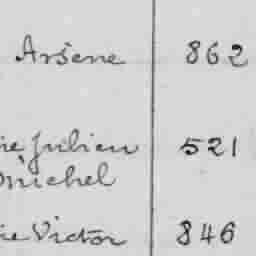 Arsène 862
ie Julien 521
Michel
ie Victor 846